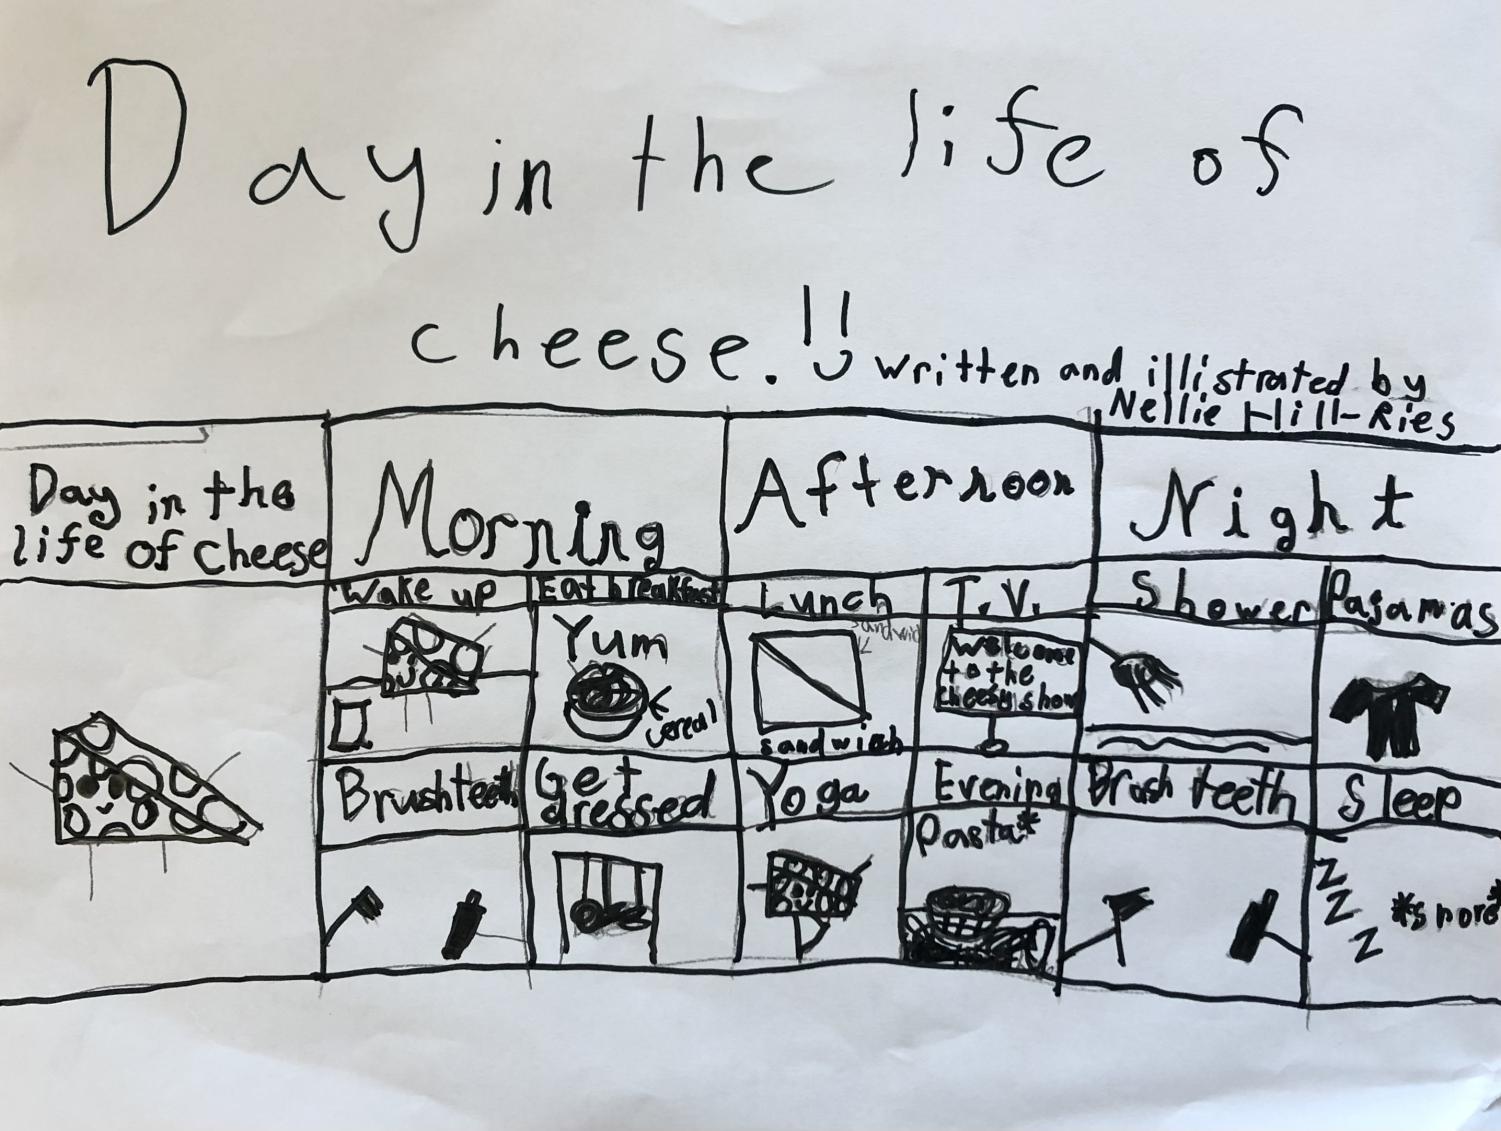 Day in the life of
cheese.!!
written and illistrated by
Nellie Hill-Ries
Day in the
life of cheese
Morning
Afternoon
Night
Wake up
Eat breakfast
Yum
cereal
Brush teeth
Get
dressed
Lunch
sandwich
T.V.
Welcome
to the
cheesy show
Yoga
Evening
Pasta*
Shower
Pajamas
Brush teeth
Sleep
Z
Z
Z
*snore*